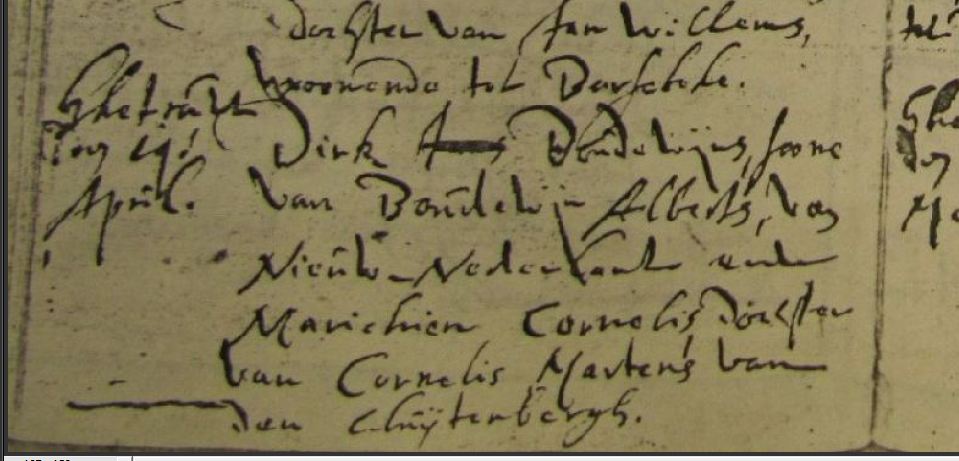 dochter van Jan Willems,
woonende tot Barfelde.
Ghetraut
den 19
April.
Dirk Boudewijns, soone
van Boudewijn Alberts, van
Nieuw-Nederlant ende
Marichien Cornelis dochter
van Cornelis Martens van
den Cluÿtenbergh.
tot
Ghe
den